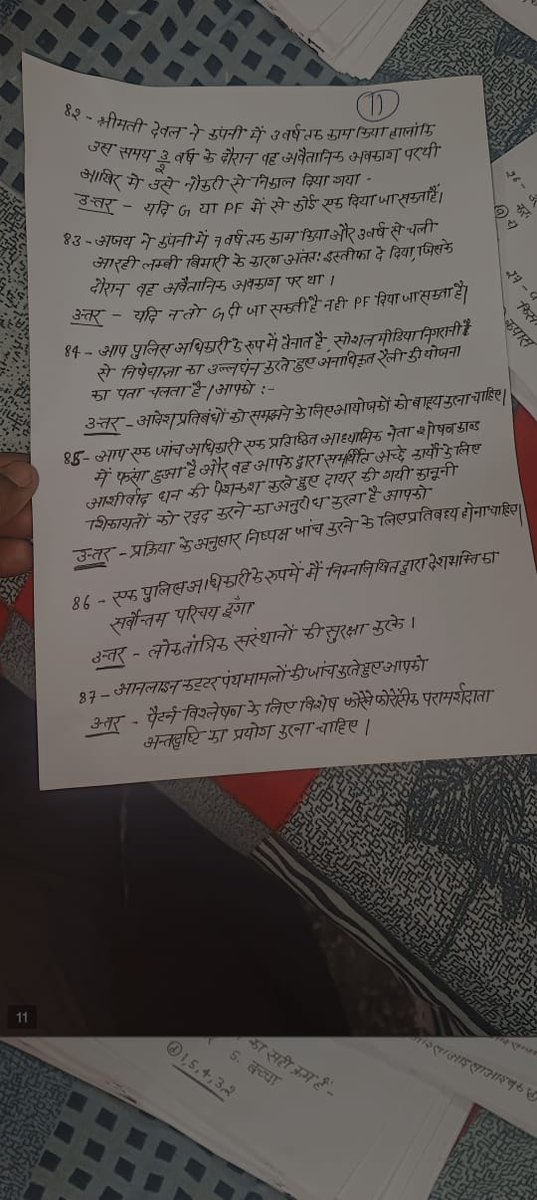 11
82 - श्रीमती देवल ने कंपनी में 3 वर्ष तक काम किया हालांकि
उस समय 3/2 वर्ष के दौरान वह अवैतानिक अवकाश पर थी
आखिर मे उसे नौकरी से निकाल दिया गया -
उत्तर - यदि G या PF में से कोई एक दिया जा सकता है।
83 - अजय ने कंपनी में 7 वर्ष तक काम किया और 3 वर्ष से चली
आ रही लम्बी बिमारी के कारण अंततः इस्तीफा दे दिया, जिसके
दौरान वह अवैतानिक अवकाश पर था।
उत्तर - यदि न तो G दी जा सकती है नही PF दिया जा सकता है।
84 - आप पुलिस अधिकारी के रूप में तैनात है, सोशल मीडिया निगरानी
से निषेधाज्ञा का उल्लघंन करते हुए अनाधिकृत रैली की योजना
का पता चलता है / आपको :-
उत्तर - आवेश प्रतिबंधों को समझने के लिए आयोजकों को बाह्य करना चाहिए।
85 - आप एक जांच अधिकारी एक प्रतिष्ठित आध्यात्मिक नेता शोषण काण्ड
में फंसा हुआ है और वह आपके द्वारा समर्थित अच्छे कार्यो के लिए
आशीर्वाद धन की पेशकश करते हुए दायर की गयी कानूनी
शिकायतों को रद्द करने का अनुरोध करता है आपको
उत्तर - प्रक्रिया के अनुसार निष्पक्ष जांच करने के लिए प्रतिबध्य होना चाहिए।
86 - एक पुलिस अधिकारी के रूप में मैं निम्नलिखित द्वारा देशभक्ति का
सर्वोत्तम परिचय दूँगा
उत्तर - लोकतांत्रिक संस्थानों की सुरक्षा करके।
87 - आनलाइन कट्टर पंथ मामलों की जांच करते हुए आपको
उत्तर - पैटर्न विश्लेषण के लिए विशेष फोरेंसिक परामर्शदाता
अन्तदृष्टि का प्रयोग करना चाहिए।
11
का सही क्रम है -
5. बच्चा
d 1,5,4,3,2